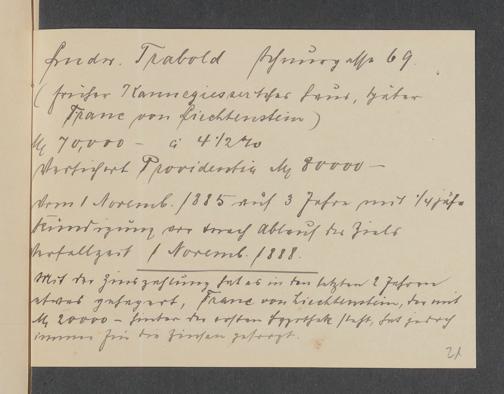 Friedr. Trabold Schnurgasse 69.
(früher Kannegiesser'sches Haus, später
Franc von Liechtenstein)
M 70,000 – à 4 1/2 %
Versichert Providentia M 80000 –
vom 1 Novemb. 1885 auf 3 Jahre mit 1/4 jähr
Kündigung vor Ablauf des Ziels
Verfallzeit 1 Novemb. 1888.
Mit der Zinszahlung hat es in den letzten 2 Jahren
etwas gehapert, Franc von Liechtenstein, der mit
M 20000 – hinter der ersten Hypothek steht, hat jedoch
immer für die Zinsen gesorgt.
21